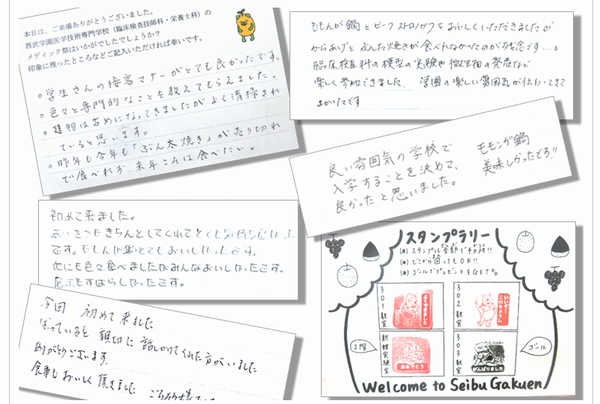 本日は、ご来場ありがとうございました。
西武学園医学技術専門学校（臨床検査技師科・栄養士科）の
メディック祭はいかがでしたでしょうか？
印象に残ったところなどご記入いただければ幸いです。
○学生さんの接客マナーがとても良かったです。
○色々と専門的なことを教えてもらえました。
○建物は古めになってきましたがよく清掃され
ていると思います。
○昨年も今年も「ぶん太焼き」が売り切れ
で食べれず、来年こそは食べたい。
ももんが鍋とビーフストロガノフをおいしくいただきましたが
からあげと ぶんた焼きが食べれなかったのが残念です…。
臨床検査科の模型の実験や微生物の発表など
楽しく参加できました 学園の楽しい雰囲気が伝わってきて
よかったです
良い雰囲気の学校で
入学することを決めて、
良かったと思いました。
モモンガ鍋
美味しかったです!!
初めて来ました。
あいさつもきちんとしてくれてとても気持ち
です。ももんが鍋とてもおいしかったです。
他にも色々食べましたがみんなおいしかったです。
すばらしかったです。
今回 初めて来ました
まよっていると 親切に 話しかけて下さった方がいました
ありがとうございます。
食事もおいしく頂きました
スタンプラリー
301教室
302教室
303教室
1階
ゴール
おめでとう
がんばりました
Welcome to Seibu Gakuen